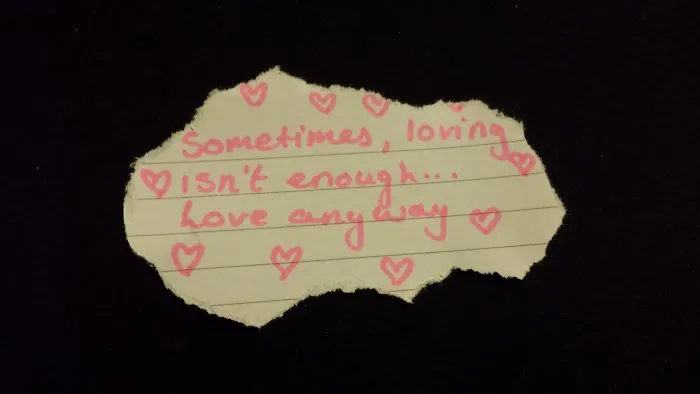 Sometimes, loving
isn't enough...
Love anyway